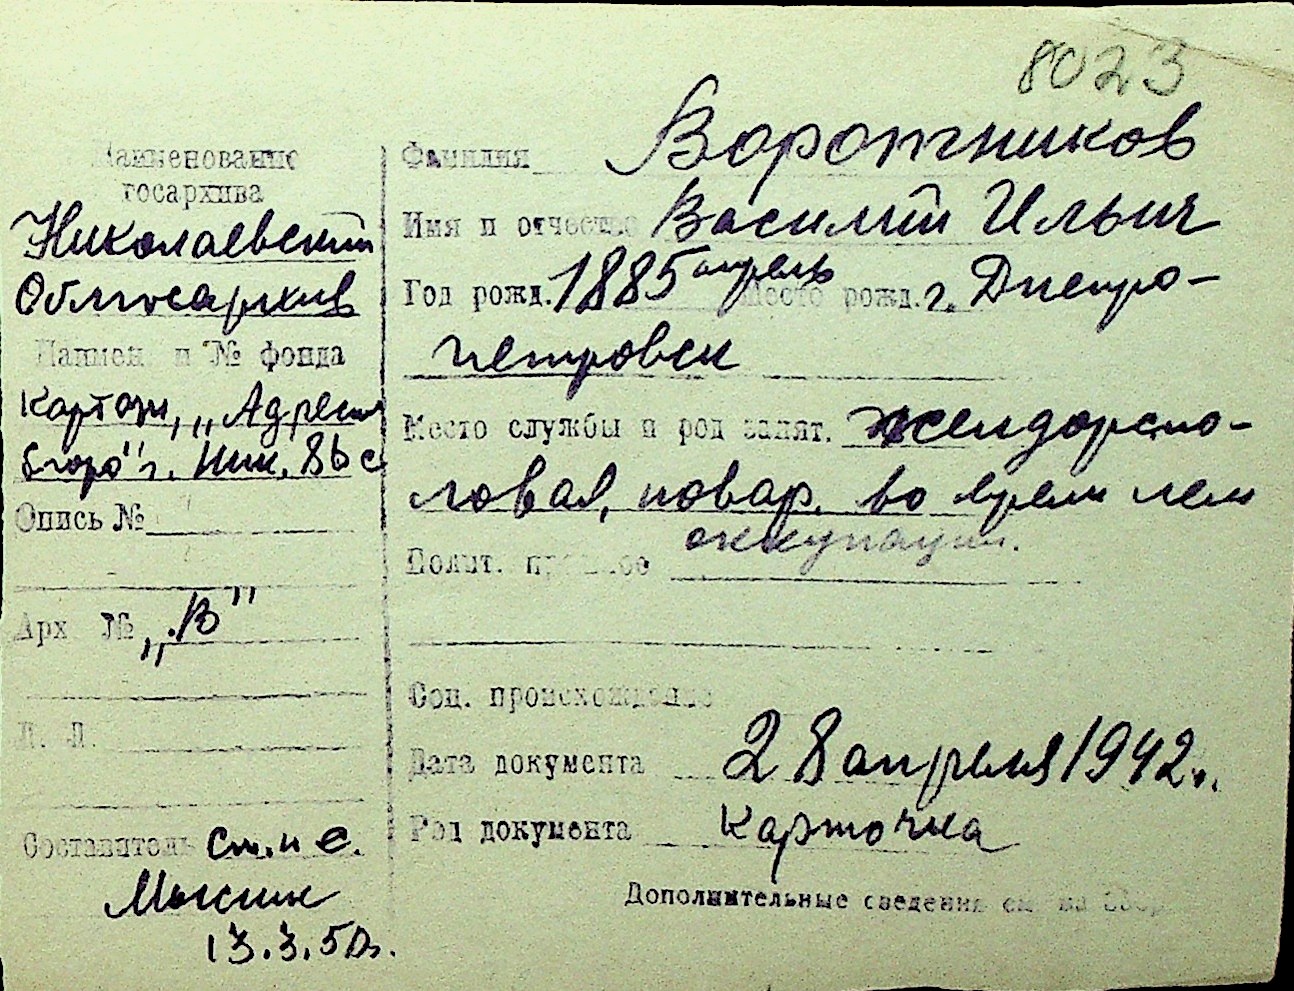 8023
Наименование
госархива
Николаевский
Облгосархив
Наимен и № фонда
Картотн, „Адресн
бюро" г. Ник. 86 с
Опись №
Арх № „В"
Л. Л.
Составитель ст. н с.
13.3.50г.
Фамилия Воротников
Имя и отчество Василий Ильич
Год рожд. 1885 апрель Место рожд. г. Днепро-
петровск
Место службы и род занят. желдорсто-
ловая, повар. во время нем
оккупации.
Полит. прошлое
Соц. происхождение
Дата документа 28 апреля 1942 г.
Род документа Карточка
Дополнительные сведения см на обор